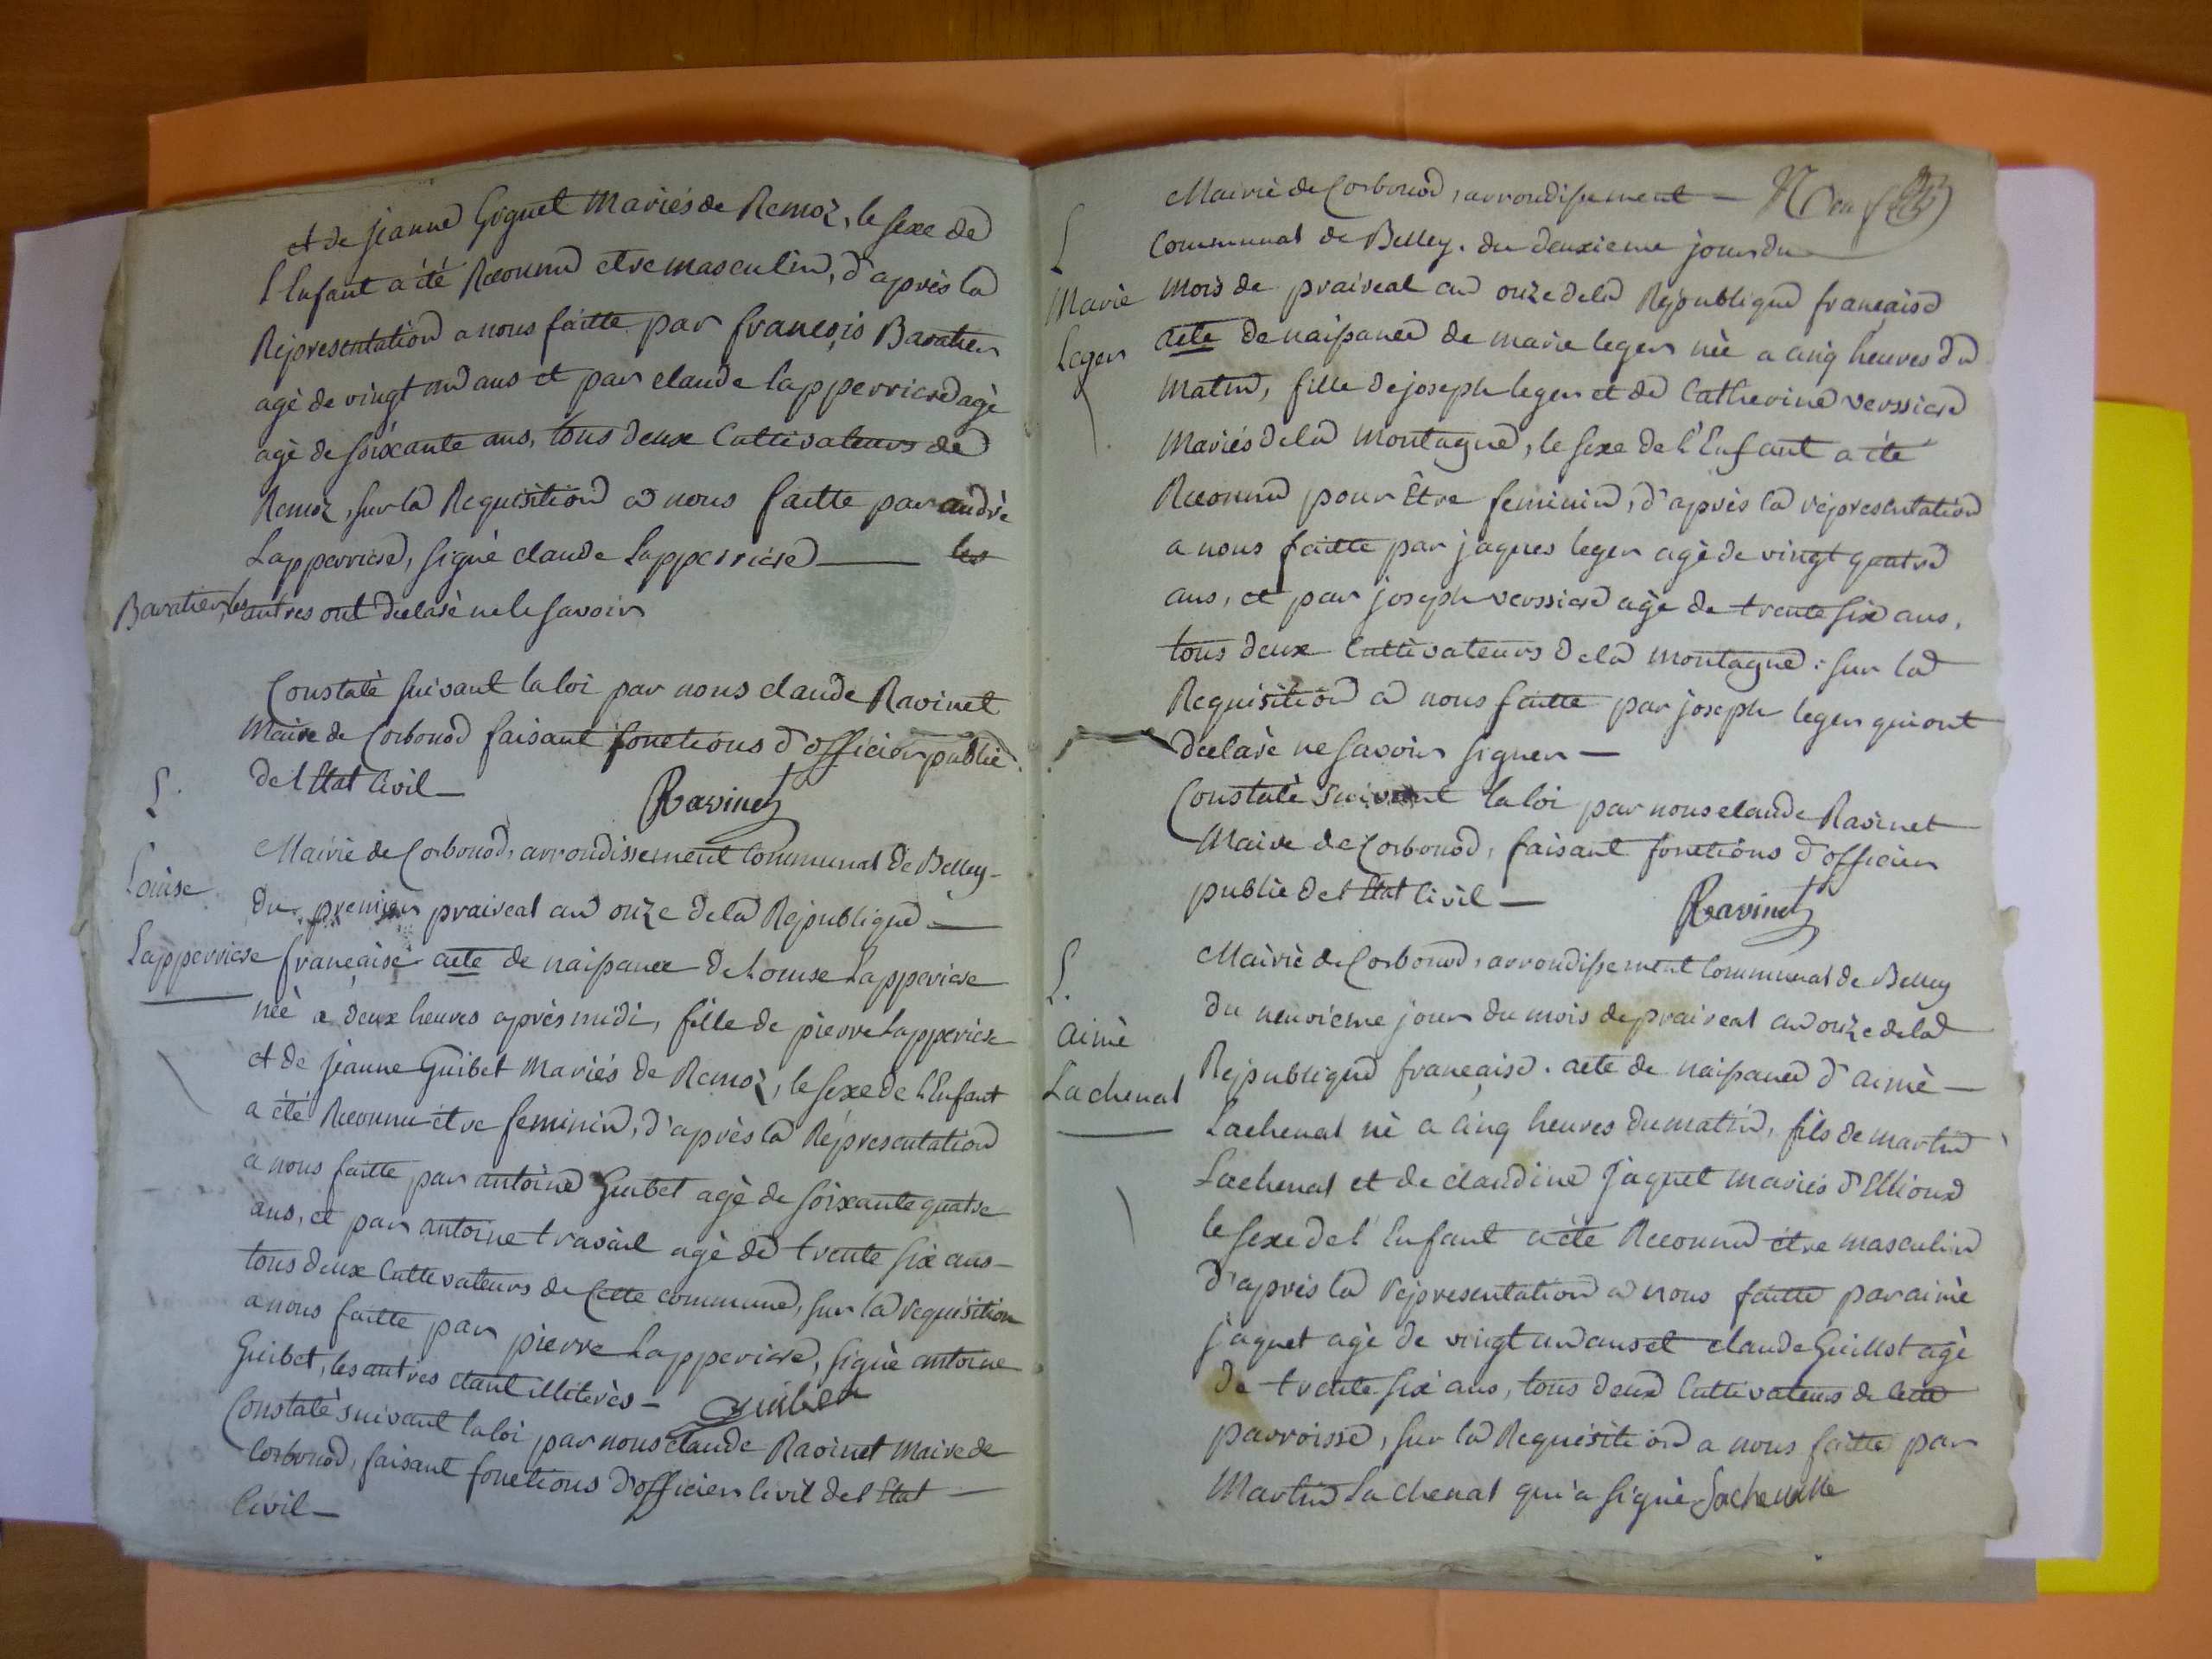 et de jeanne Goguet mariés de Remoz, le sexe de
l'Enfant a été Reconnu etre masculin, d'après la
Représentation a nous faitte par françois Baratier
agè de vingt un ans et par claude lapperriere agè
agè de soixante ans, tous deux Cultivateurs de
Remoz, sur la Requisition a nous faitte par andrè
Lapperriere, signè claude Lapperriere — les
Baratier, les autres ont declarè ne le savoir
Constatè suivant la loi par nous claude Ravinet
Maire de Corbonod faisant fonctions d'officier public
de l Etat Civil —
Ravinet
L.
Louise
Lapperriere
Mairie de Corbonod, arrondissement Communal de Belley —
du premier praireal an onze de la Republique —
française acte de naissance de Louise Lapperiere
née a deux heures après midi, fille de pierre Lapperiere
et de jeanne Guibet Mariés de Remoz, le sexe de l'Enfant
a été Reconnu étre feminin, d'après la Représentation
a nous faitte par antoine Guibet agè de soixante quatre
ans, et par antoine travail agè de trente six ans —
tous deux Cultivateurs de Cette commune, sur la requisition
a nous faitte par pierre Lapperiere, signè antoine
Guibet, les autres etant illiterès — Guibet
Constatè suivant la loi par nous claude Ravinet Maire de
Corbonod, faisant fonctions d'officier Civil de l Etat —
Civil —
L
Marie
Leger
Mairie de Corbonod, arrondissement —
Communal de Belley. du deuxieme jour du
mois de praireal an onze de la République française
acte de naissance de marie leger née a cinq heures du
matin, fille de joseph leger et de Catherine verssiere
Mariés de la montagne, le sexe de l'Enfant a été
Reconnu pour Être feminin, d'après la représentation
a nous faitte par jaques leger agè de vingt quatre
ans, et par joseph verssiere agè de trente six ans,
tous deux Cultivateurs de la montagne. sur la
Requisition a nous faitte par joseph leger qui ont
declarè ne savoir signer —
Constatè suivant la loi par nous claude Ravinet
Maire de Corbonod, faisant fonctions d'officier
public de l Etat Civil —
Ravinet
L.
aimè
Lachenal
Mairie de Corbonod, arrondissement Communal de Belley
du neuvieme jour du mois de praireal an onze de la
République française. acte de naissance d'aimè —
Lachenal né a Cinq heures du matin, fils de martin
Lachenal et de claudine Jaquet mariés d'Ellioux
le sexe de l'Enfant a été Reconnu étre masculin
d'après la représentation a nous faitte par aimè
jaquet agè de vingt un ans et claude Guillot agè
de trente six ans, tous deux Cultivateurs de cette
parroisse, sur la Requisition a nous faitte par
Martin Lachenal qui a signè